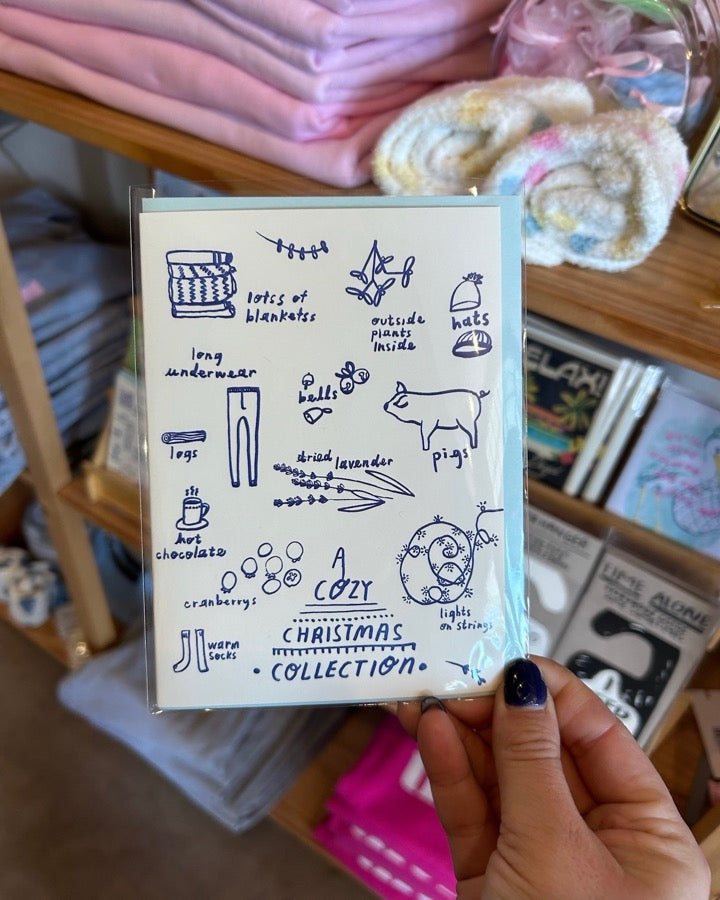 lotss of
blanketss
outside
plants
inside
hats
long
underwear
bells
pigs
logs
dried lavender
hot
chocolate
cranberrys
lights
on strings
warm
socks
A
COZY
CHRISTMAS
• COLLECTION •
RELAX!
TIME ALONE